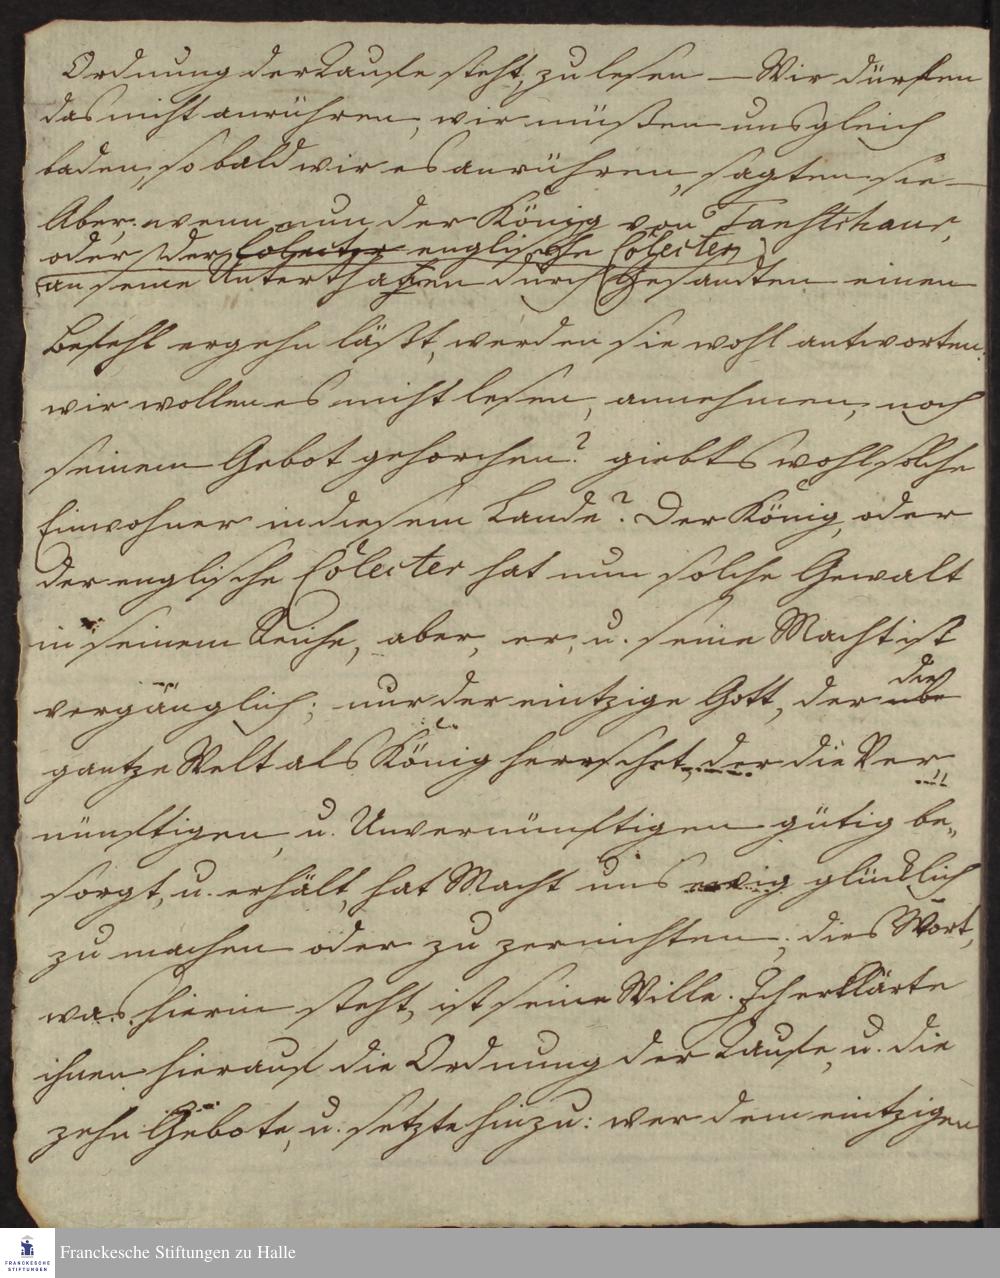 Ordnung der Taufe steht, zu lesen — Wir dürfen
das nicht anrühren, wir müßen uns gleich
baden, so bald wir es anrühren, sagten sie —
Aber wenn nun der König von Tanschaur,
oder der Colecter englische Colecter
an seine Unterthanen durch Gesandten einen
Befehl ergehn läßt, werden sie wohl antworten:
wir wollen es nicht lesen, annehmen, noch
seinem Gebot gehorchen? giebts wohl solche
Einwohner in diesem Lande? Der König, oder
der englische Colecter hat nun solche Gewalt
in seinem Reiche, aber, er, u. seine Macht ist
vergänglich; nur der eintzige Gott, der die
gantze Welt als König herrschet, der die Ver
nünftigen, u. Unvernünftigen gütig be„
sorgt, u. erhält, hat Macht uns ewig glücklich
zu machen oder zu zernichten; dies Wort,
was hierin steht, ist sein Wille. Ich erklärte
ihnen hierauf die Ordnung der Taufe, u. die
zehn Gebote, u. setzte hinzu: wer dem eintzigen
FRANCKESCHE
STIFTUNGEN
Franckesche Stiftungen zu Halle